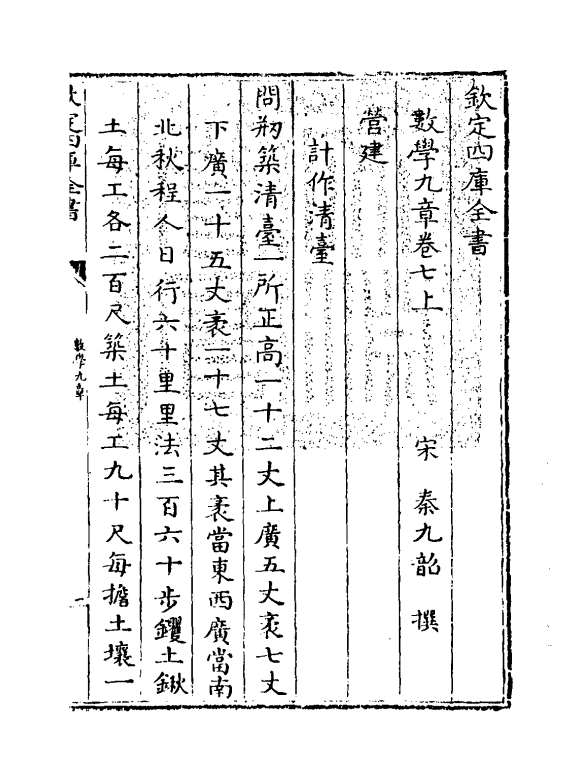 欽定四庫全書
數學九章卷七上
宋 秦九韶 撰
營建
計作清臺
問剏築清臺一所正高一十二丈上廣五丈袤七丈
下廣一十五丈袤一十七丈其袤當東西廣當南
北秋程人日行六十里里法三百六十步钁土鍬
土每工各二百尺築土每工九十尺每擔土壤一
欽定四庫全書
數學九章
一